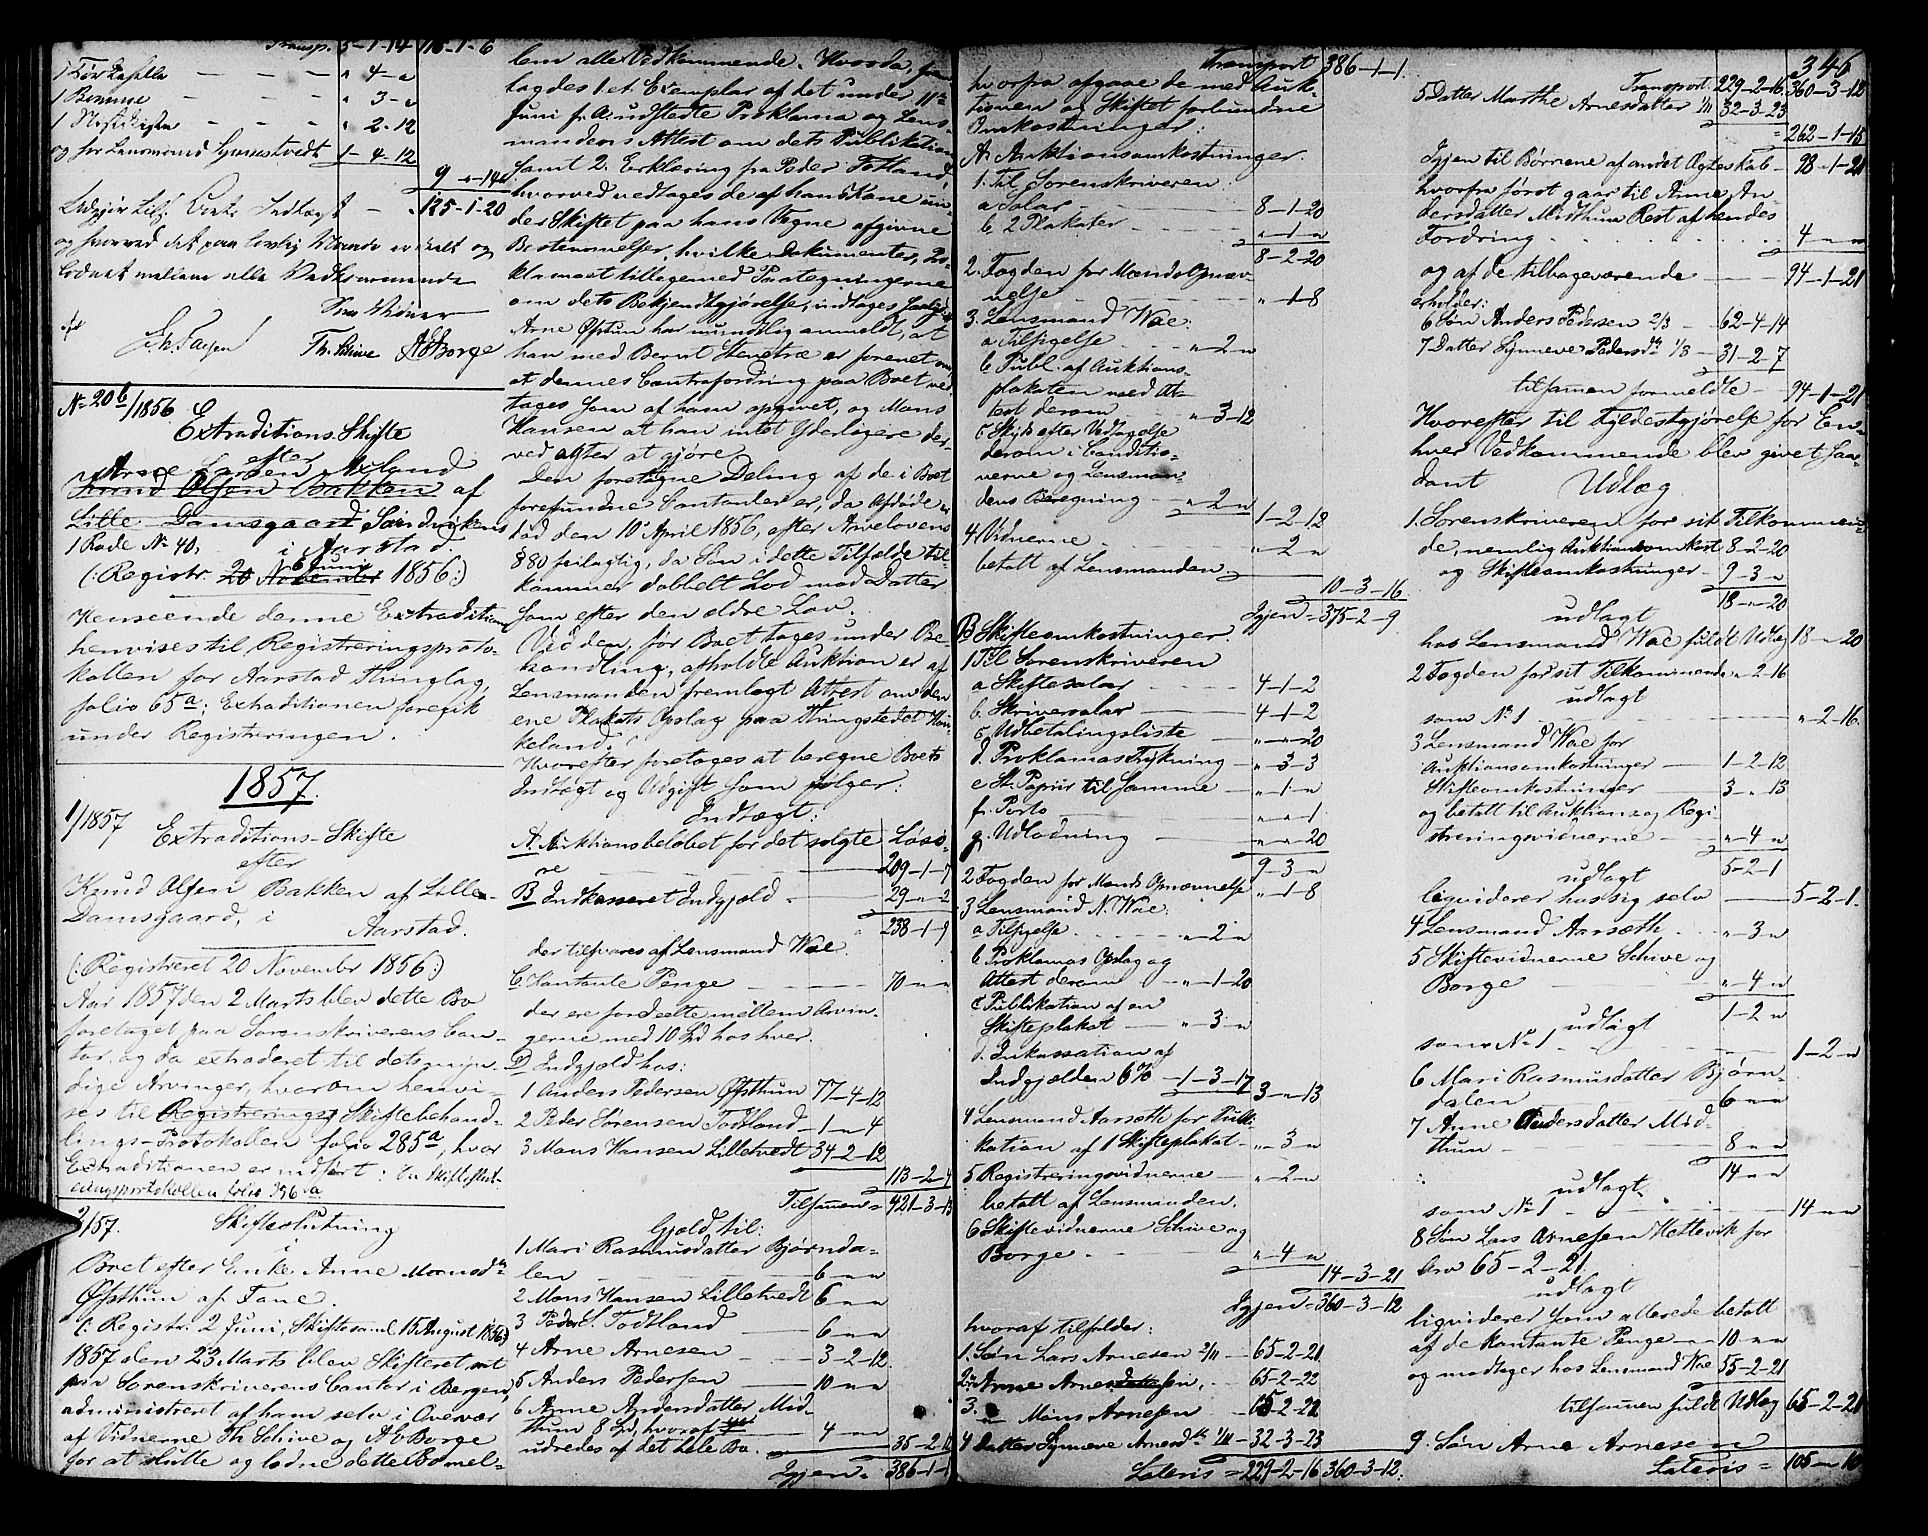 Transp. 3-1-14 | 116-1-6
" 4-"
1 Bomme - - - " 3-"
1 Mostekiste - - " 2-12
og for Lensmand Lynnestvedt 1-4-12
9-"-14
125-1-20
og hvorved det paa lovlig Maade er skilt og
lodnet mellem alle Vedkommende
Th. Schive AvBorge
No 20 b/1856
Extraditions-Skifte
efter
Arne Larsen Axland
Knud Olsen Bakken af
Lille Damsgaard Sandvikens
1 Rode No 40, i Aarstad
6 Juni
(: Registr. 20 November 1856:)
Henseende denne Extradition
henvises til Registreringsproto-
kollen for Aarstad Thinglag,
folio 65a; Extraditionen foregik
under Registreringen.
1857.
1/1857
Extraditions-Skifte
efter
Knud Olsen Bakken af Lille-
Damsgaard, i
Aarstad.
(: Registreret 20 November 1856:)
Aar 1857 den 2 Marts blev dette Bo
foretaget paa Sorenskriverens Con-
tor, og da extraderet til dets myn-
dige Arvinger, hvorom henvi-
ses til Registrerings Skiftebehand-
lings-Protokollen folio 285a, hvor
Extraditionen er indført:
folio 356 a
2/57. Skifteslutning
i
Boet efter Enke Anne Monsdtr
Øfsthun af Fane.
(: Registr. 2 Juni, Skiftesaml. 15 August 1856:)
1857 den 23 Marts blev Skifteret sat
paa Sorenskriverens Contor i Bergen,
administreret af ham selv i Overvær
af Vidnerne Th. Schive og AvBorge
for at slutte og lodne dette Bo mel-
lem alle Vedkommende. Hvorda, frem-
lagdes 1. et Exemplar af det under 11te
Juni f. A. udstedte Proklama og Lens-
mandens Attest om dets Publikation
samt 2. Erklæring fra Peder Totland,
hvorved vedtages de af hans Kone un-
der Skiftet paa hans Vegne afgivne
Bestemmelser, hvilke Dokumenter, Pro-
klamaet tilligemed Paategningerne
om dets Bekjendtgjørelse, indtages
Arne Øfstun har mundtlig anmeldt, at
han med Bernt Stenetræ er forenet om
at dennes Contrafordring paa Boet ved-
tages som af ham opgivet, og Mons
Hansen at han intet Yderligere der-
ved agter at gjøre.
Den foretagne Deling af de i Boet
forefundne Contanter er, da Afdøde er
død den 10 April 1856, efter Arvelovens
§ 80 feilagtig, da Søn i dette Tilfælde til-
kommer dobbelt Lod mod Datter
som efter den ældre Lov.
Ved den, før Boet tages under Be-
handling, afholdte Auktion er af
Lensmanden fremlagt Attest om den
ene Plakats Opslag paa Thingstedet Hau-
keland.
Hvorefter foretages at beregne Boets
Indtægt og Udgift som følger:
Indtægt:
A. Auktionsbeløbet for det solgte Løsø-
re - 209-1-7
B Indkasseret Indgjæld - 29-"-2
238-1-9
der tilsvares af Lensmand Wae.
C. Contante Penge - 70-"-"
der ere fordeelte mellem Arvin-
gerne med 10 Spd hos hver.
D Indgjæld hos:
1 Anders Pedersen Øfsthun 77-4-12
2 Peder Sørensen Todtland - 1-"-4
3 Mons Hansen Lilletvedt 34-2-12
113-2-4
Tilsammen = 421-3-13
Gjæld til:
1 Mari Rasmusdatter Bjørnda-
len - 6-"-"
2 Mons Hansen Lilletvedt 6-"-"
3 Peder S. Todtland - 6-"-"
4 Arne Arnesen - 3-2-12
5 Anders Pedersen - 10-"-"
6 Anne Andersdatter Mid-
thun 8 Spd, hvoraf
udredes af det hele Bo. - 4-"-"
35-2-12
Igjen = 386-1-1
Transport 386-1-1.
hvorfra afgaae de med Auk-
tionen og Skiftet forbundne
Omkostninger:
A. Auktionsomkostninger.
1. Til Sorenskriveren:
a Salær - 8-1-20
b 2 Plakater - "-1-"
8-2-20
2. Fogden for Mænds Opnæv-
nelse - "-1-8
3. Lensmand Wae:
a Tilsigelse - "-2-"
b Publ. af Auktions-
plakaten med At-
test derom - "-3-12
c Skyds efter Vedtagelse
derom i Conditio-
nerne og Lensman-
dens Beregning - "-2-"
1-2-12
4. Vidnerne - "-2-"
betalt af Lensmanden
10-3-16
Igjen = 375-2-9
B Skifteomkostninger
1 Til Sorenskriveren
a Skiftesalær - 4-1-2
b. Skriversalær - 4-1-2
c Udbetalingsliste - "-"-20
d. Proklamas Trykning - "-3-3
e St. Papiir til samme - "-1-"
f. Porto - "-"-1
g. Udlodning - "-"-20
9-3-"
2 Fogden for Mænds Opnævnelse "-1-8
3 Lensmand N. Wae:
a Tilsigelse - "-2-"
b Proklamas Opslag og
Attest derom - "-1-20
c Publikation af en
Skifteplakat - "-3-"
d. Inkassation af
Indgjælden 6% -1-3-17
3-"-13
4 Lensmand Aarsæth for Publi-
kation af 1 Skifteplakat - "-3-"
5 Registreringsvidnerne - "-2-"
betalt af Lensmanden.
6 Skiftevidnerne Schive og
Borge - "-4-"
14-3-21
Igjen = 360-3-12
hvoraf tilfalder:
1. Søn Lars Arnesen 2/11 - 65-2-21
2. " Arne Arnesen - 65-2-22
3. " Mons Arnesen - 65-2-22
4 Datter Synneve Arnesdtr 1/11 - 32-3-23
Lateris = 229-2-16 360-3-12.
346
Transport. 229-2-16 360-3-12
5 Datter Marthe Arnesdatter 1/11 32-3-23
= 262-1-15
Igjen til Børnene af andet Ægteskab - 98-1-21
hvorfra først gaar til Anne An-
dersdatter Midthun Rest af hendes
Fordring - 4-"-"
og af de tilbageværende - 94-1-21
erholder:
6 Søn Anders Pedersen 2/3 - 62-4-14
7 Datter Synneve Pedersdtr 1/3 - 31-2-7
tilsammen formeldte - 94-1-21
Hvorefter til Fyldestgjørelse for En-
hver Vedkommende blev givet saa-
dant Udlæg
1. Sorenskriveren for sit Tilkommen-
de, nemlig Auktionsomkost 8-2-20
og Skifteomkostninger - 9-3-"
18-"-20
udlagt
hos Lensmand Wae fuldt Udlæg 18-"-20
2 Fogden for sit Tilkommende "-2-16
udlagt
som No 1 - "-2-16.
3 Lensmand Wae for
Auktionsomkostninger - 1-2-12
Skifteomkostninger - 3-"-13
og betalt til Auktions og Regi-
streringsvidnerne - "-4-"
5-2-1
udlagt
liqviderer hos sig selv - 5-2-1.
4 Lensmand Aarsæth - "-3-"
5 Skiftevidnerne Schive og
Borge - "-4-"
1-2-"
udlagt
som No 1 - 1-2-"
6 Mari Rasmusdatter Bjørn-
dalen - 6-"-"
7 Anne Andersdatter Mid-
thun - 8-"-"
14-"-"
udlagt
som No 1 - 14-"-"
8 Søn Lars Arnesen Hettevik for
Arv 65-2-21.
udlagt
liqviderer som allerede betalt
af de kontante Penge - 10-"-"
og modtager hos Lensmand Wae 55-2-21
tilsammen fuldt Udlæg 65-2-21
9. Søn Arne Arnesen
Lateris = 105-"-10